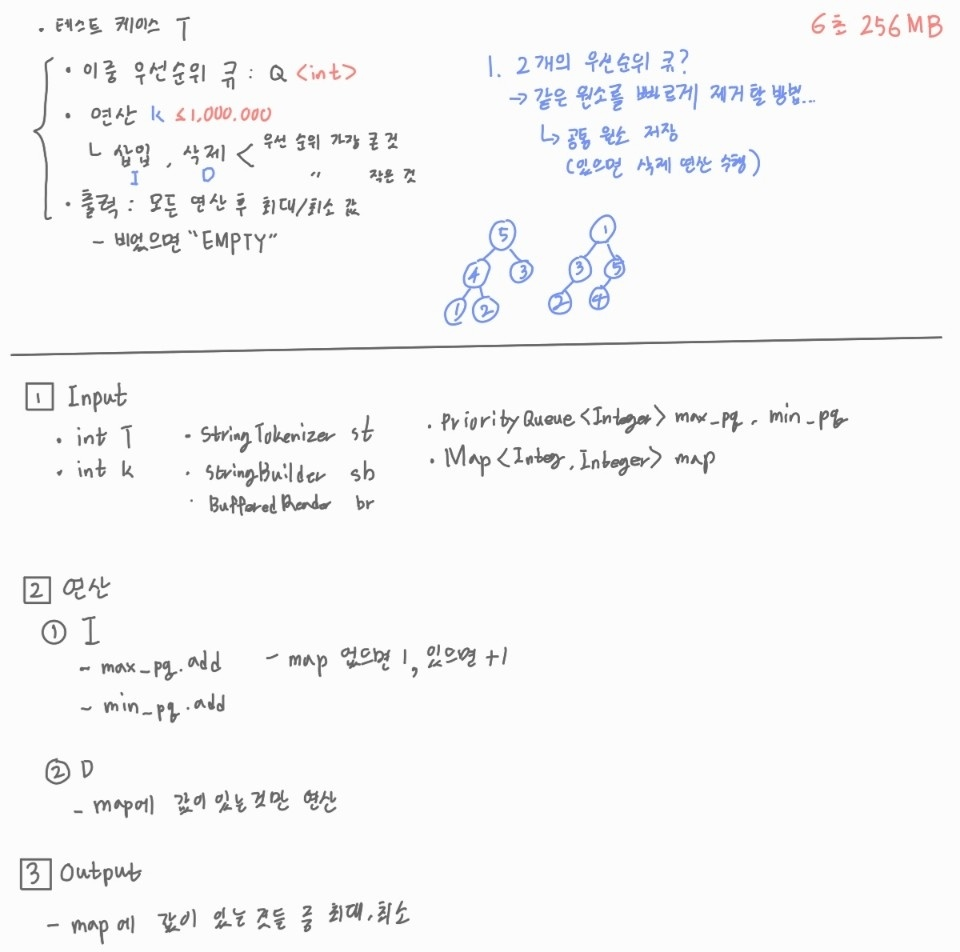 · 테스트 케이스 T
6초 256MB
· 이중 우선순위 큐 : Q <int>
· 연산 k ≤1,000.000
ㄴ 삽입, 삭제 < 우선 순위 가장 큰 것
I D 〃 작은 것
· 출력 : 모든 연산 후 최대/최소 값
- 비었으면 "EMPTY"
1. 2개의 우선순위 큐?
→ 같은 원소를 빠르게 제거할 방법...
↳ 공통 원소 저장
(있으면 삭제 연산 수행)
5
4 3
1 2
1
3 5
2 4
1 Input
· int T
· int k
· StringTokenizer st
· StringBuilder sb
· BufferedReader br
· PriorityQueue <Integer> max_pq, min_pq
· Map <Integ, Integer> map
2 연산
① I
- max_pq.add - map 없으면 1, 있으면 +1
- min_pq.add
② D
- map에 값이 있는것만 연산
3 Output
- map에 값이 있는 것들 중 최대, 최소